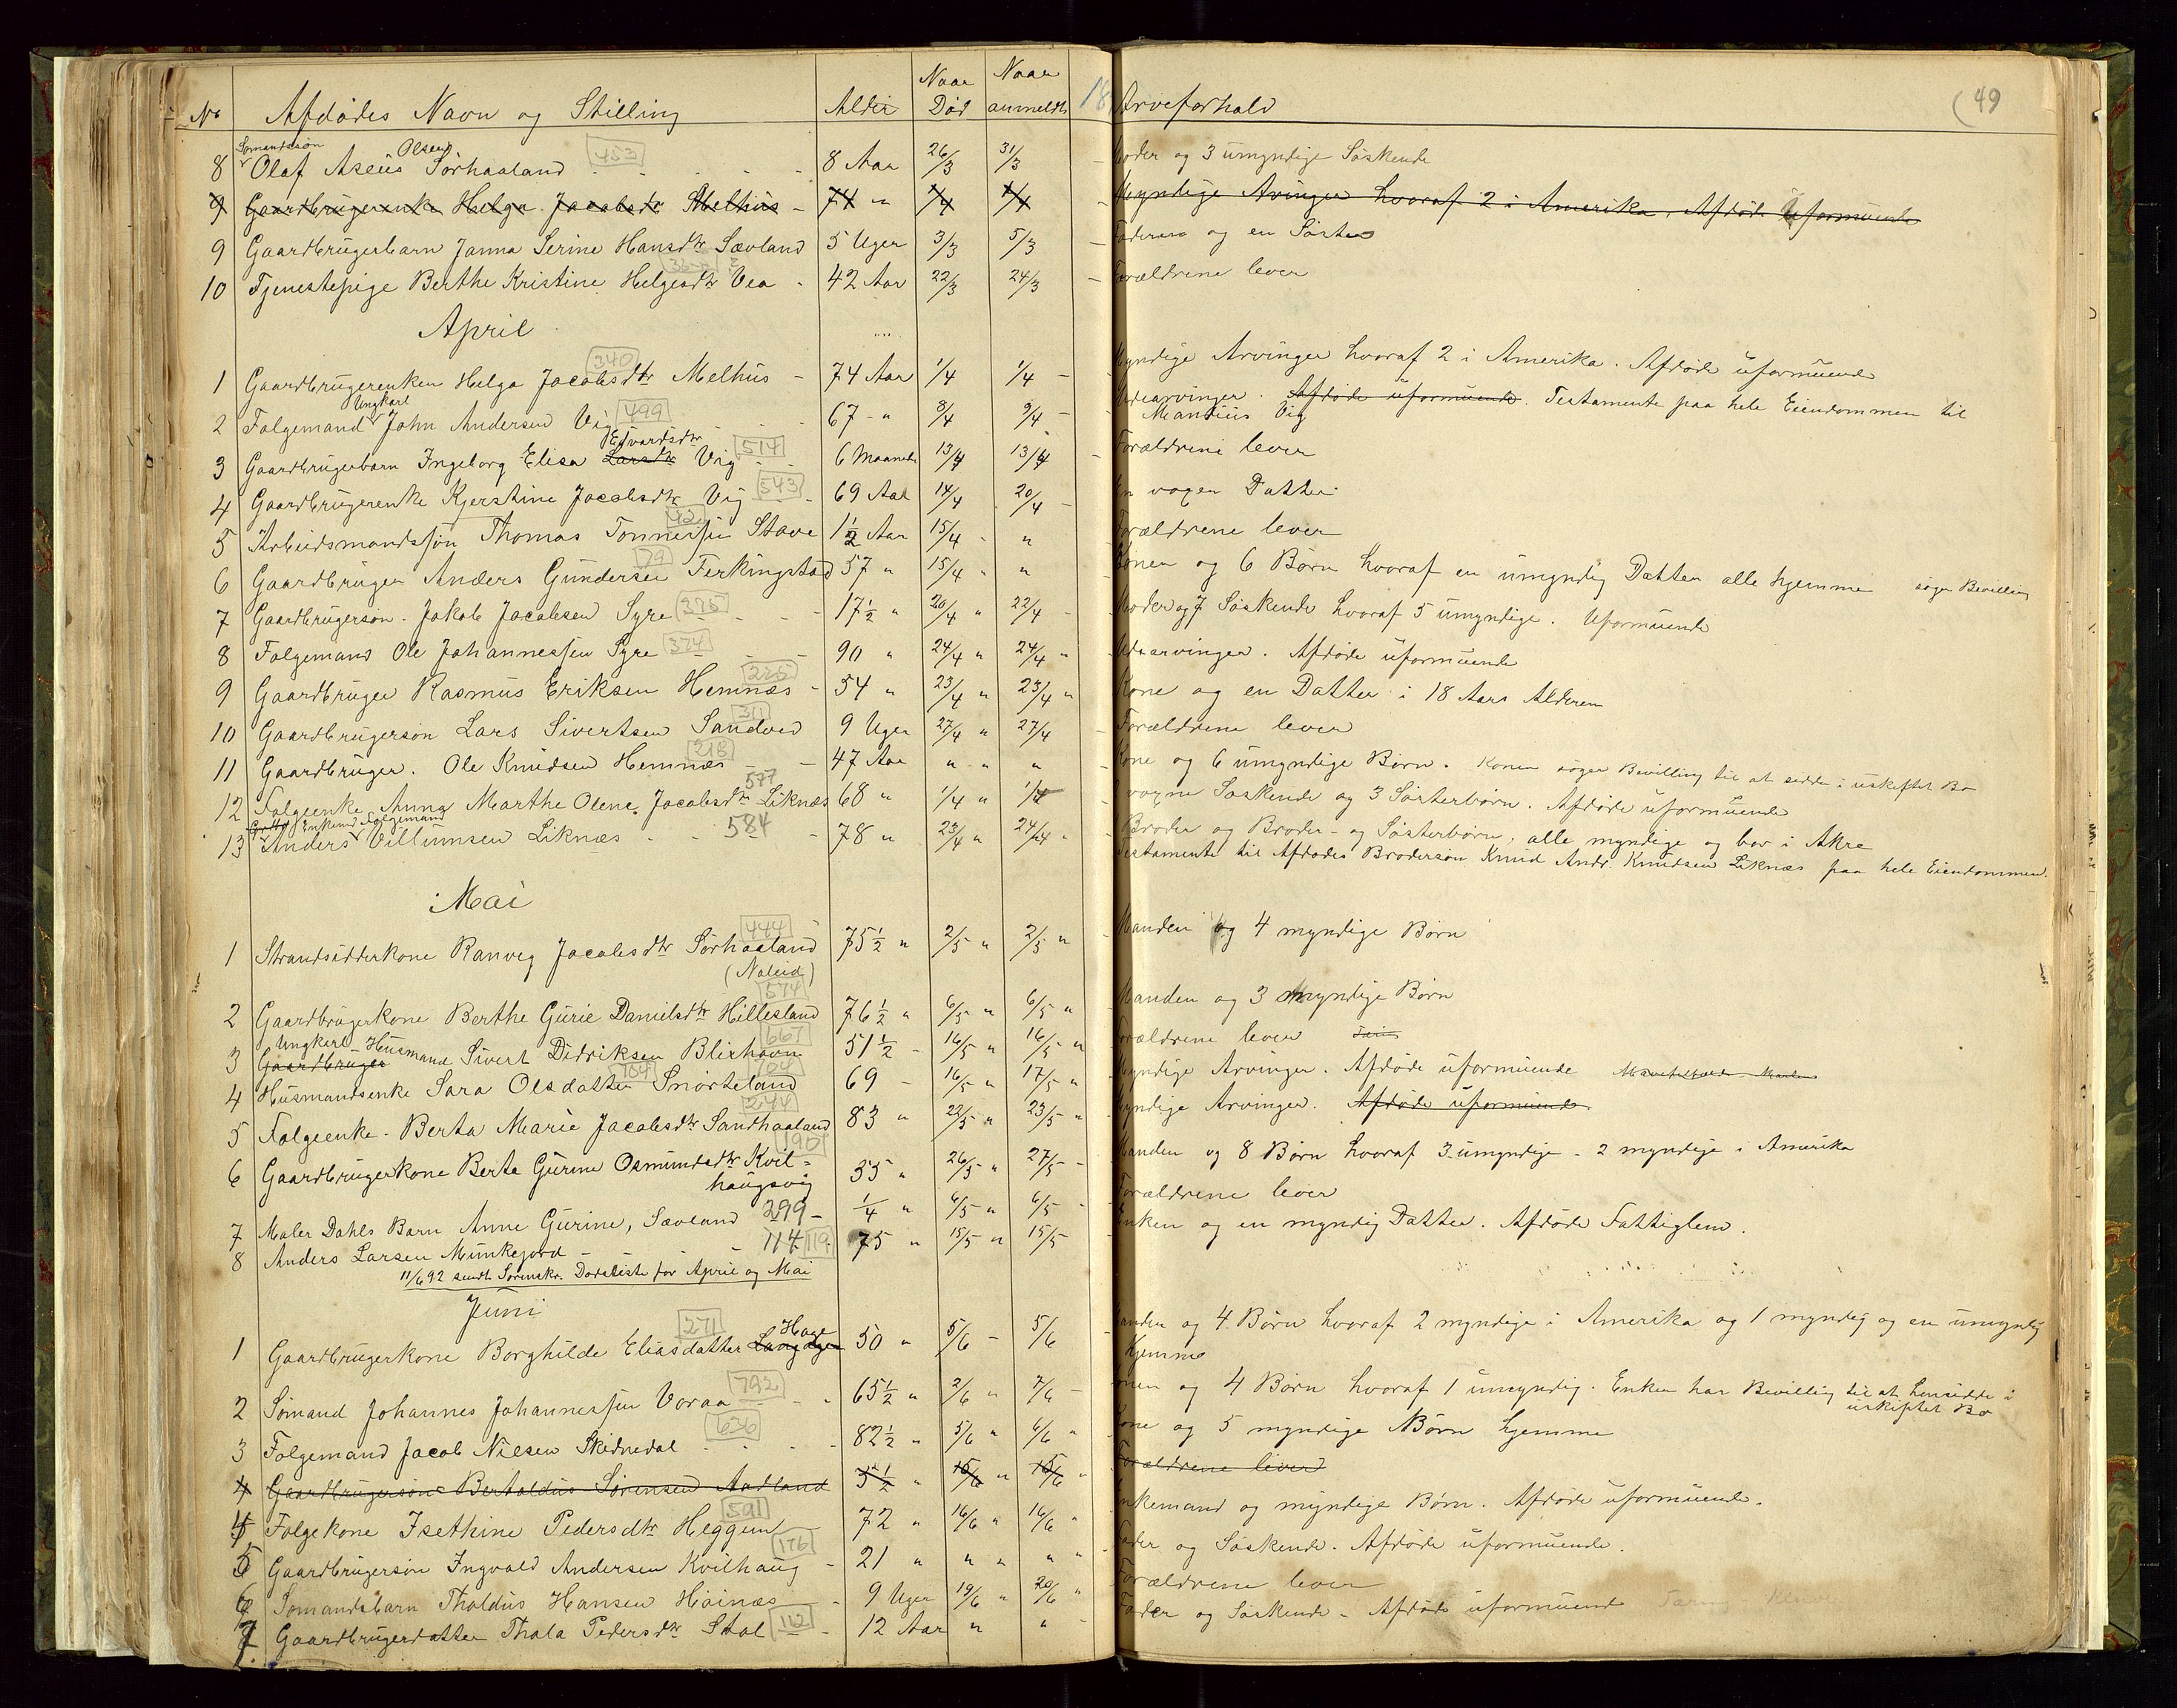 No Afdødes Navn og Stilling Alder Naar Død Naar anmeldt 18 Arveforhold (49
Sømandssøn Olsen
8 Olaf Aseüs Sørhaaland 453 8 Aar 26/3 31/3 Moder og 3 umyndige Søskende
9 Gaardbrugerenke Helga Jacobsdtr Melhüs 74 " 1/4 1/4 Myndige Arvinger hvoraf 2 i Amerika, Afdøde uformüende
9 Gaardbrugerbarn Janna Serine Hansdtr Sævland 5 Uger 3/3 5/3 Faderen og en Søster
10 Tjenestepige Berthe Kristine Helgesdtr Vea 42 Aar 22/3 24/3 Forældrene lever
April
1 Gaardbrugerenken Helga Jacobsdtr Melhüs 340 74 Aar 1/4 1/4 Myndige Arvinger hvoraf 2 i Amerika. Afdøde uformüende
Ungkarl
2 Følgemand John Andersen Vig 499 67 " 8/4 9/4 Udearvinger. Afdøde uformüende. Testamente paa hele Eiendommen til
Mandius Vig
Edvardsdtr
3 Gaardbrugerbarn Ingeborg Elisa Larsdtr Vig 514 6 Maaneder 13/4 13/4 Forældrene lever
4 Gaardbrugerenke Kjerstine Jacobsdtr Vig 543 69 Aar 14/4 20/4 En voxen Datter
5 Arbeidsmandssøn Thomas Tonnessen Stave 42 1½ Aar 15/4 " Forældrene lever
6 Gaardbruger Anders Gundersen Ferkingstad 79 57 " 15/4 " Konen og 6 Børn hvoraf en umyndig Datter alle hjemme søger Bevilling
7 Gaardbrugersøn. Jakob Jacobsen Syre 375 17½ " 20/4 " 22/4 Moder og 7 Søskende hvoraf 5 umyndige. Uformüende
8 Følgemand Ole Johannessen Syre 374 90 " 24/4 " 24/4 " Udearvinger. Afdøde uformüende
9 Gaardbruger Rasmus Eriksen Hemnæs 225 54 " 23/4 " 23/4 " Kone og en Datter i 18 Aars Alderen
10 Gaardbrugersøn Lars Sivertsen Sandved 311 9 Uger 27/4 " 27/4 Forældrene lever
11 Gaardbruger. Ole Knudsen Hemnæs 218 47 Aar " " " Kone og 6 umyndige Børn. Konen søger Bevilling til at sidde i uskiftet Bo
12 Følgeenke Anna Marthe Olene Jacobsdtr Liknæs 577 68 " 1/4 " 1/4 voxne Søskende og 3 Søsterbørn. Afdøde uformüende
Enkemd Følgemand
13 Anders Villumsen Liknæs 584 78 " 23/4 " 24/4 " Broder og Broder- og Søsterbørn, alle myndige og bor i Akre
Testamente til Afdødes Brodersøn Knud Andr. Knudsen Liknæs paa hele Eiendommen.
Mai
1 Strandsidderkone Ranveg Jacobsdtr Sørhaaland 444 75½ " 2/5 " 2/5 " Manden og 4 myndige Børn
(Naleid)
2 Gaardbrugerkone Berthe Gurie Danielsdtr Hillesland 574 76½ " 6/5 " 6/5 " Manden og 3 myndige Børn
Ungkarl Husmand
3 Gaardbruger Sivert Didriksen Blixhavn 667 51½ 16/5 " 16/5 " Forældrene lever
4 Husmandsenke Sara Olsdatter Snørteland 704 704 69 16/5 " 17/5 " Myndige Arvinger. Afdøde uformüende
5 Følgeenke. Berta Marie Jacobsdtr Sandhaaland 244 83 " 22/5 " 23/5 " Myndige Arvinger. Afdøde uformüende.
6 Gaardbrugerkone Berta Gurine Osmundsdtr Kvil= 190 55 " 26/5 " 27/5 Manden og 8 Børn hvoraf 3 umyndige - 2 myndige i Amerika
haugsvig
7 Maler Dahls Barn Anne Gurine, Sævland 299 1/4 " 6/5 " 6/5 Forældrene lever
8 Anders Larsen Munkejord 114 119 75 " 15/5 " 15/5 Enken og en myndig Datter. Afdøde Fattiglem.
11/6 92 sendt Sorenskr. Dødsliste for April og Mai
Juni
Hage
1 Gaardbrugerkone Borghilde Eliasdatter Langager 271 50 " 5/6 5/6 Manden og 4 Børn hvoraf 2 myndige i Amerika og 1 myndig og en umyndig
hjemme
2 Sømand Johannes Johannessen Voraa 792 65½ " 2/6 " 7/6 Konen og 4 Børn hvoraf 1 umyndig. Enken har Bevilling til at hensidde i
uskiftet Bo
3 Følgemand Jacob Nilsen Skidnedal 636 82½ " 5/6 " 6/6 " Kone og 5 myndige Børn hjemme
4 Gaardbrugersøn Bertoldus Sørensen Aadland 5½ 15/6 " 15/6 " Forældrene lever
4 Følgekone Isethine Pedersdtr Heggem 591 72 " 16/6 " 16/6 " Enkemand og myndige Børn. Afdøde uformüende.
5 Gaardbrugersøn Ingvald Andersen Kvilhaug 176 21 " " " " " Fader og Søskende. Afdøde uformüende.
6 Sømandsbarn Tholdus Hansen Høinæs 9 Uger 19/6 " 20/6 " Forældrene lever
7 Gaardbrugerdatter Thala Pedersdtr Stol 112 12 Aar " " Fader og Søskende - Afdøde uformüende